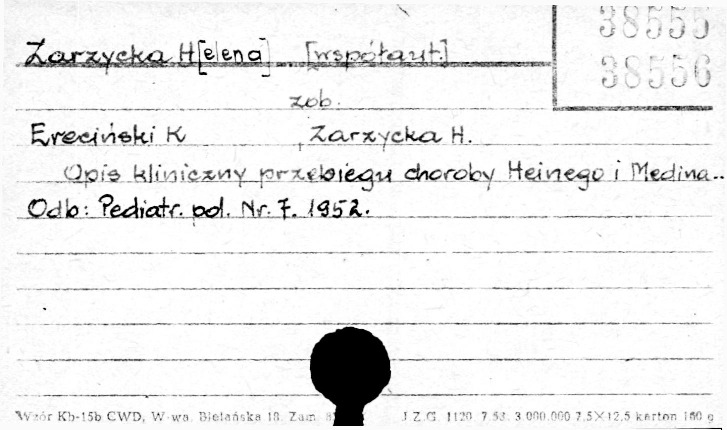 38555
38556
Zarzycka H[elena] [współaut.]
zob.
Ereciński K , Zarzycka H.
Opis kliniczny przebiegu choroby Heinego i Medina..
Odb: Pediatr. pol. Nr. 7. 1952.
Wzór Kb-15b CWD, W-wa, Bielańska 18. Zam. J.Z.G. 1120 7.53. 3.000.000 7,5×12,5 karton 160 g